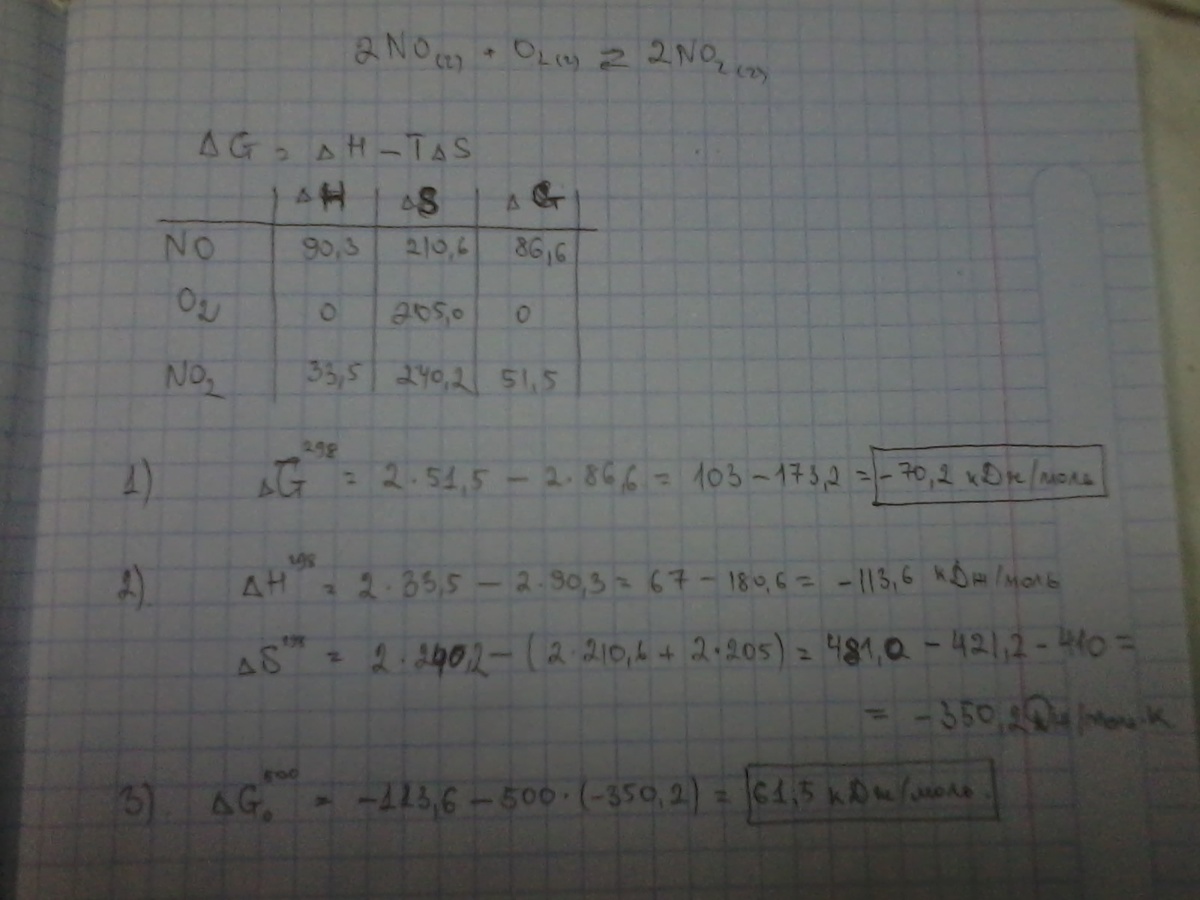 2NO(г) + O₂(г) ⇄ 2NO₂(г)
ΔG = ΔH – TΔS
ΔH ΔS ΔG
NO 90,3 210,6 86,6
O₂ 0 205,0 0
NO₂ 33,5 240,2 51,5
1) ΔG²⁹⁸ = 2·51,5 – 2·86,6 = 103 – 173,2 = -70,2 кДж/моль
2) ΔH²⁹⁸ = 2·33,5 – 2·90,3 = 67 – 180,6 = -113,6 кДж/моль
ΔS²⁹⁸ = 2·240,2 – (2·210,6 + 2·205) = 481,0 – 421,2 – 410 =
= -350,2 Дж/моль·К
3). ΔG₀⁵⁰⁰ = -113,6 – 500·(-350,2) = 61,5 кДж/моль.